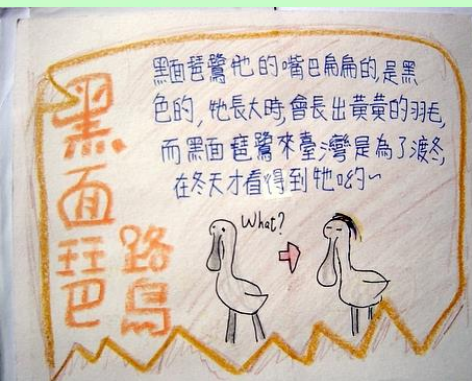 黑面琵鷺
黑面琵鷺他的嘴巴扁扁的,是黑
色的,牠長大時,會長出黃黃的羽毛,
而黑面琵鷺來臺灣是為了渡冬,
在冬天才看得到牠喲~
What?